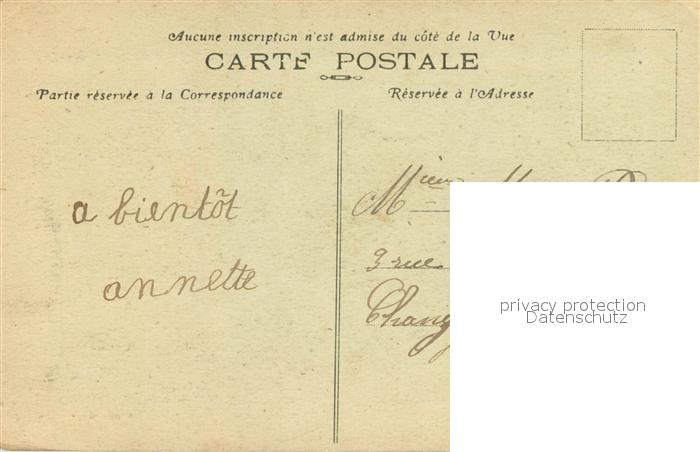 Aucune inscription n'est admise du côté de la Vue
CARTE POSTALE
Partie réservée à la Correspondance
Réservée à l'Adresse
a bientôt
annette
3 rue
privacy protection
Datenschutz